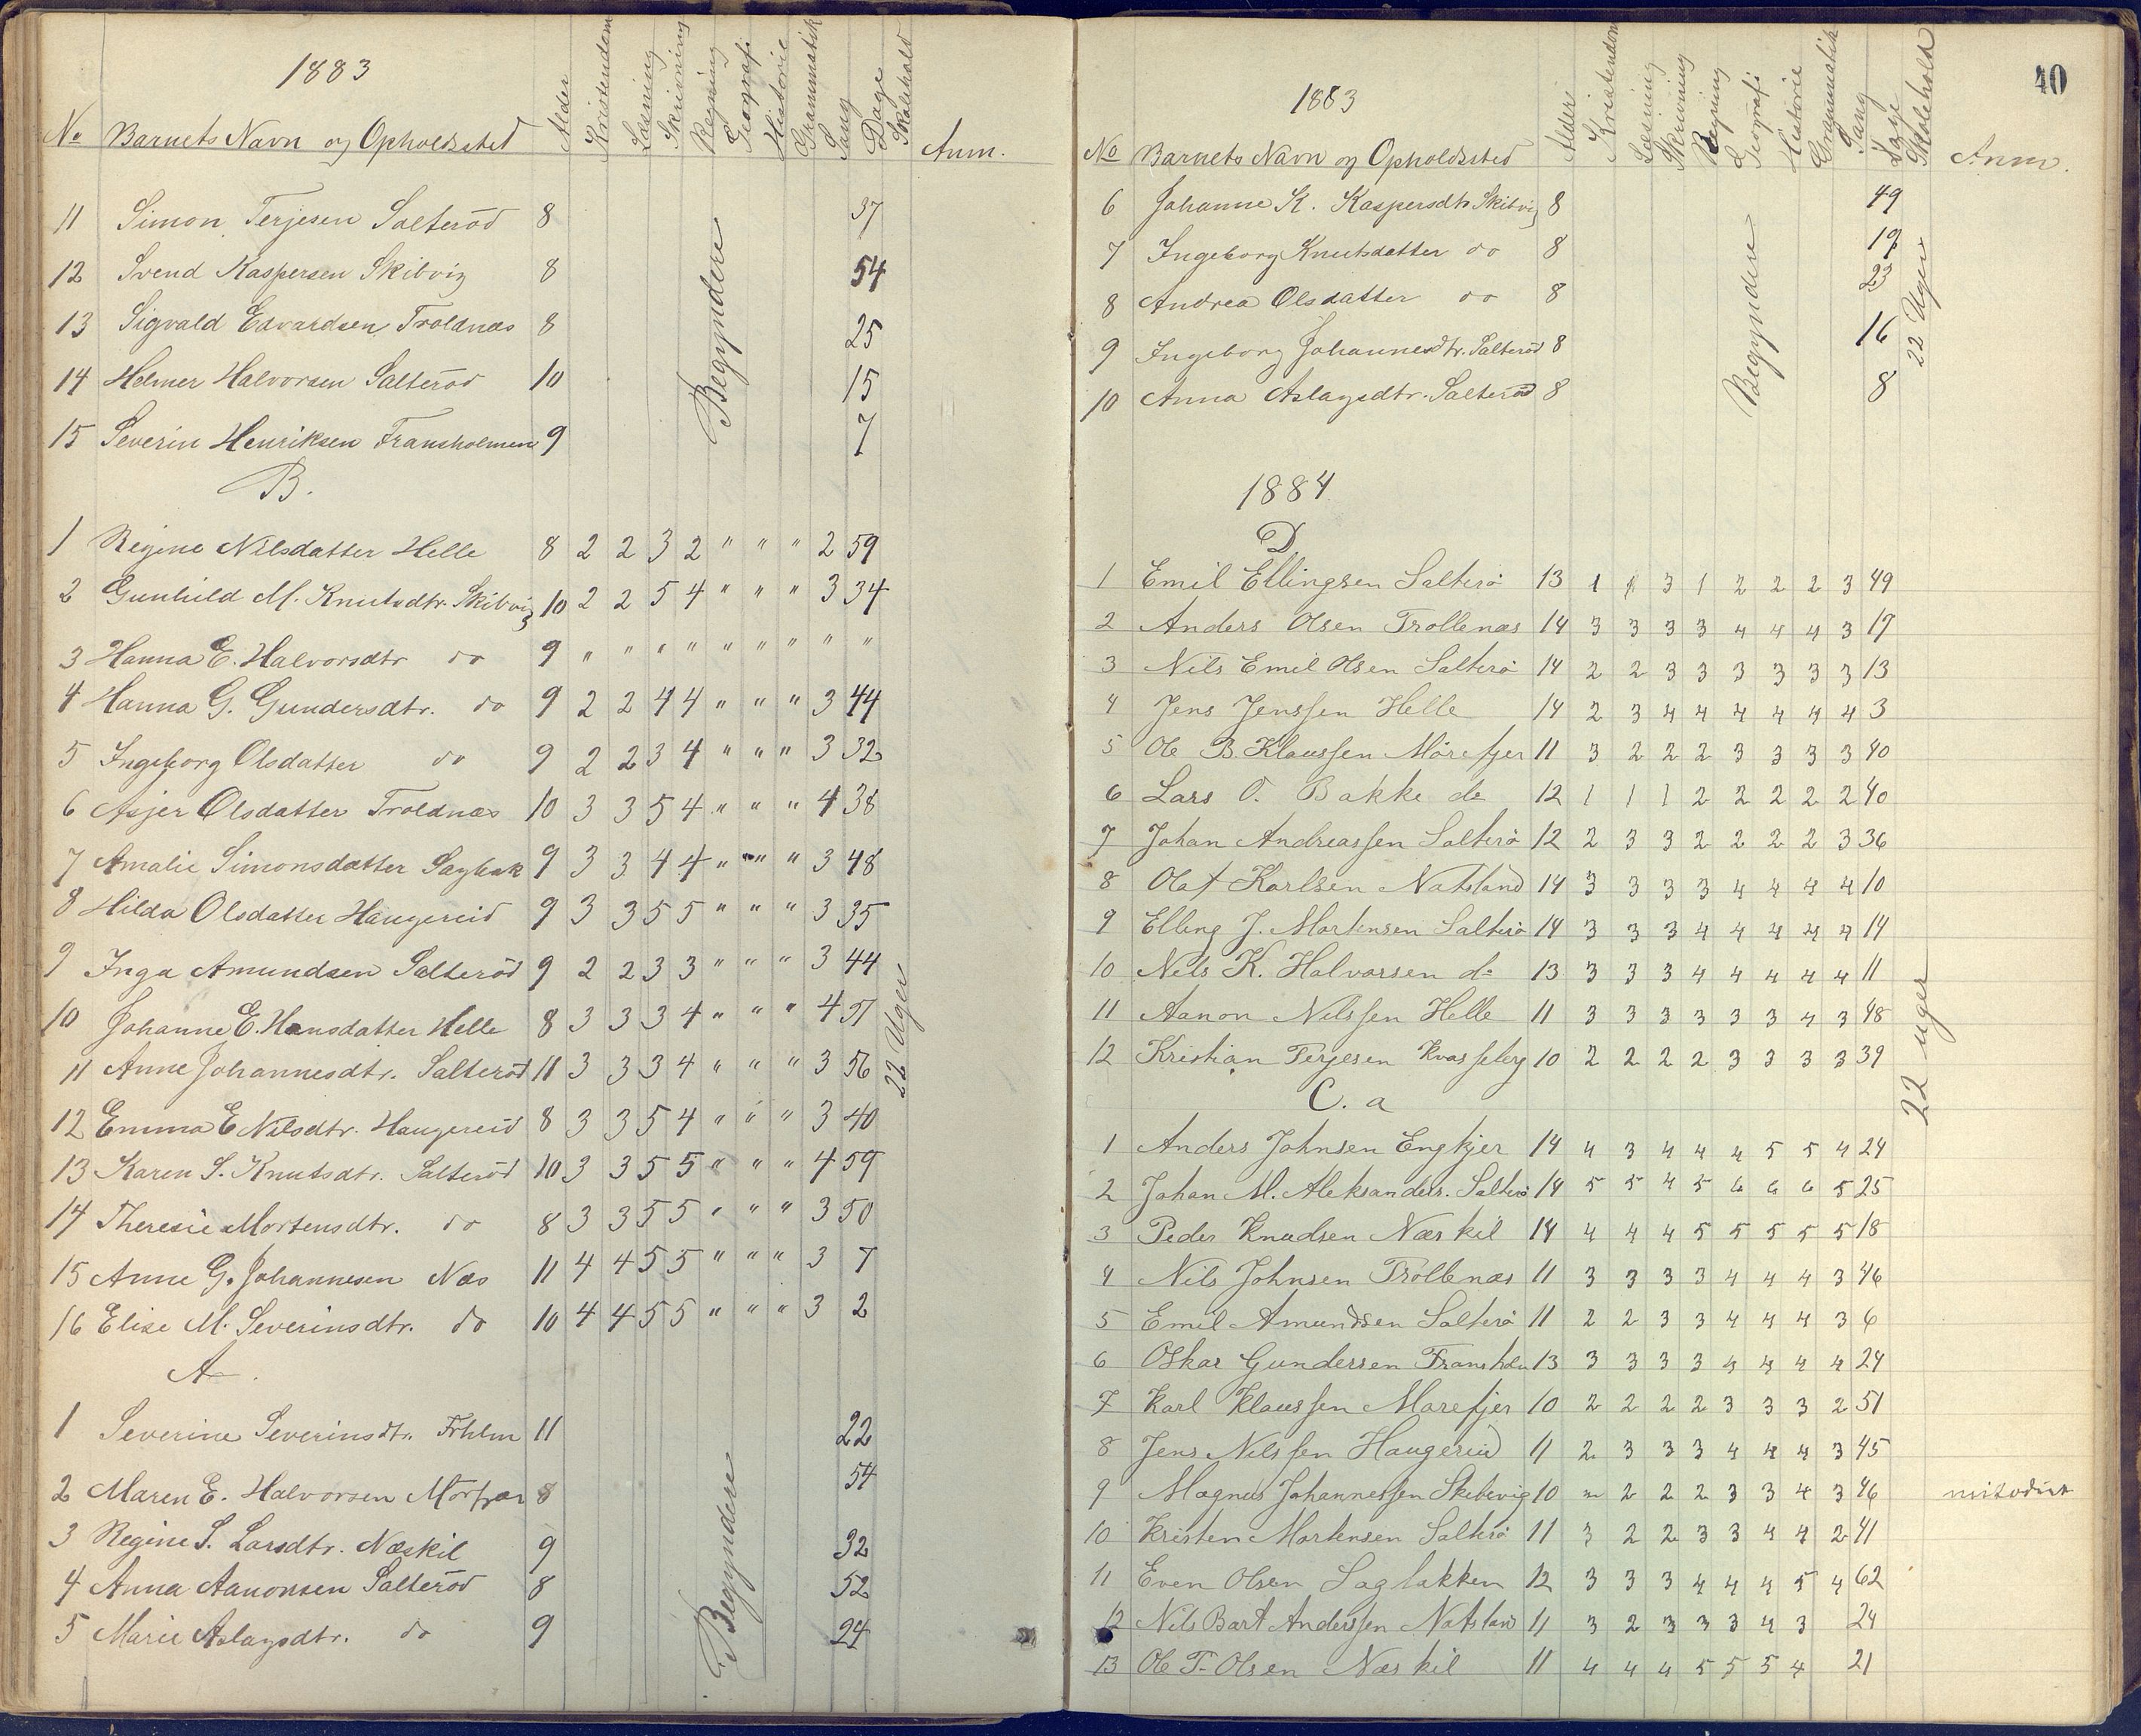 1883
No Barnets Navn og Opholdssted Alder Kristendom Læsning Skrivning Regning Geografi Historie Grammatik Sang Dage Skolehold Anm.
11 Simon Terjesen Salterød 8 37
12 Svend Kaspersen Skibvig 8 54
13 Sigvald Edvardsen Troldnæs 8 25
14 Helmer Halvorsen Salterød 10 15
15 Severin Henriksen Fransholmen 9 7
Begyndere
B.
1 Regine Nilsdatter Helle 8 2 2 3 2 " " " 2 59
2 Gunhild M. Knutsdtr. Skibvig 10 2 2 5 4 " " " 3 34
3 Hanna E. Halvorsdtr do 9 " " " " " " " " "
4 Hanna G. Gundersdtr. do 9 2 2 4 4 " " " 3 44
5 Ingeborg Olsdatter do 9 2 2 3 4 " " " 3 32
6 Asjer Olsdatter Troldnæs 10 3 3 5 4 " " " 4 38
7 Amalie Simonsdatter Sagbak 9 3 3 4 4 " " " 3 48
8 Hilda Olsdatter Haugereid 9 3 3 5 5 " " " 3 35
9 Inga Amundsen Salterød 9 2 2 3 3 " " " 3 44
10 Johanne E. Hansdatter Helle 8 3 3 3 4 " " " 4 51
11 Anne Johannesdtr. Salterød 11 3 3 3 4 " " " 3 56
12 Emma E Nilsdtr. Haugereid 8 3 3 5 4 " " " 3 40
13 Karen S. Knutsdtr. Salterød 10 3 3 5 5 " " " 4 59
14 Theresie Mortensdtr. do 8 3 3 5 5 " " " 3 50
15 Anne G. Johannesen Næs 11 4 4 5 5 " " " 3 7
16 Elise M. Severinsdtr. do 10 4 4 5 5 " " " 3 2
22 Uger
A.
1 Severine Severinsdtr. Frhlm 11 22
2 Maren E. Halvorsen 8 54
3 Regine S. Larsdtr. Næskil 9 32
4 Anna Aanonsen Salterød 8 52
5 Marie Aslagsdtr. do 9 24
Begyndere
40
1883
No Barnets Navn og Opholdssted Alder Kristendom Læsning Skrivning Regning Geografi Historie Grammatik Sang Dage Skolehold Anm.
6 Johanne K. Kaspersdtr Skibvig 8 49
7 Ingeborg Knutsdatter do 8 19
8 Andrea Olsdatter do 8 23
9 Ingeborg Johannesdtr. Salterød 8 16
10 Anna Aslagsdtr. Salterød 8 8
Begyndere
22 Uger
1884
D
1 Emil Ellingsen Salterø 13 1 1 3 1 2 2 2 3 49
2 Anders Olsen Trollenæs 14 3 3 3 3 4 4 4 3 17
3 Nils Emil Olsen Salterø 14 2 2 3 3 3 3 3 3 13
4 Jens Jenssen Helle 14 2 3 4 4 4 4 4 4 3
5 Ole B. Klaussen Mørefjer 11 3 2 2 2 3 3 3 3 40
6 Lars O. Bakke do 12 1 1 1 2 2 2 2 2 40
7 Johan Andreassen Salterø 12 2 3 3 2 2 2 2 3 36
8 Olaf Karlsen Natsland 14 3 3 3 3 4 4 4 4 10
9 Elling J. Mortensen Salterø 14 3 3 3 4 4 4 4 4 14
10 Nels K. Halvorsen do 13 3 3 3 4 4 4 4 4 11
11 Aanon Nilssen Helle 11 3 3 3 3 3 3 4 3 48
12 Kristian Terjesen Kvasseberg 10 2 2 2 2 3 3 3 3 39
C. a
1 Anders Johnsen Engkjer 14 4 3 4 4 4 5 5 4 24
2 Johan M. Aleksanders. Salterø 14 5 5 4 5 6 6 6 5 25
3 Peder Knudsen Næskil 14 4 4 4 5 5 5 5 5 18
4 Nils Johnsen Trollenæs 11 3 3 3 3 4 4 4 3 46
5 Emil Amundsen Salterø 11 2 2 3 3 4 4 4 3 6
6 Oskar Gundersen Fransholm 13 3 3 3 3 4 4 4 4 24
7 Karl Klaussen Marefjer 10 2 2 2 2 3 3 3 2 51
8 Jens Nilssen Haugereid 11 2 3 3 3 4 4 4 3 45
9 Magnus Johannessen Skibevig 10 " 2 2 2 3 3 4 3 46
10 Kristen Mortensen Salterø 11 3 2 2 3 3 4 4 2 41
11 Even Olsen Sagbakken 12 3 3 3 4 4 4 5 4 62
12 Nils Bart Anderssen Natsland 11 3 2 3 3 3 4 3 24
13 Ole T. Olsen Næskil 11 4 4 4 5 5 5 4 21
22 uger